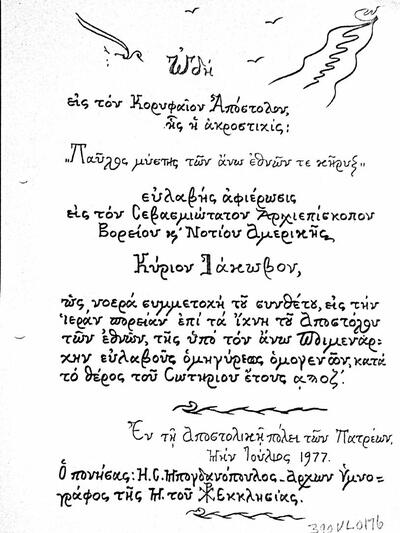 Ὠδή
εἰς τόν Κορυφαῖον Ἀπόστολον,
ἧς ἡ ἀκροστικίς:
"Παῦλος μύστης τῶν ἄνω ἐθνῶν τε κῆρυξ"
εὐλαβής ἀφιέρωσις
εἰς τόν Σεβασμιώτατον Ἀρχιεπίσκοπον
Βορείου κ' Νοτίου Ἀμερικῆς
Κύριον Ἰάκωβον,
ὡς νοερά συμμετοχή τοῦ συνθέτου, εἰς τήν
Ἱεράν πορείαν ἐπί τά ἴχνη τοῦ Ἀποστόλου
τῶν ἐθνῶν, τῆς ὑπό τόν ἄνω Ποιμενάρ-
χην εὐλαβοῦς ὁμηγύρεως ὁμογενῶν, κατά
τό θέρος τοῦ Σωτηρίου ἔτους αϡοζ'.
Ἐν τῇ Ἀποστολικῇ πόλει τῶν Πατρέων,
Μήν Ἰούλιος 1977.
Ὁ πονήσας: Η.С. Μπογδανόπουλος - Ἄρχων Ὑμνο-
γράφος τῆς Μ. τοῦ Χ Ἐκκλησίας.
390VL0176